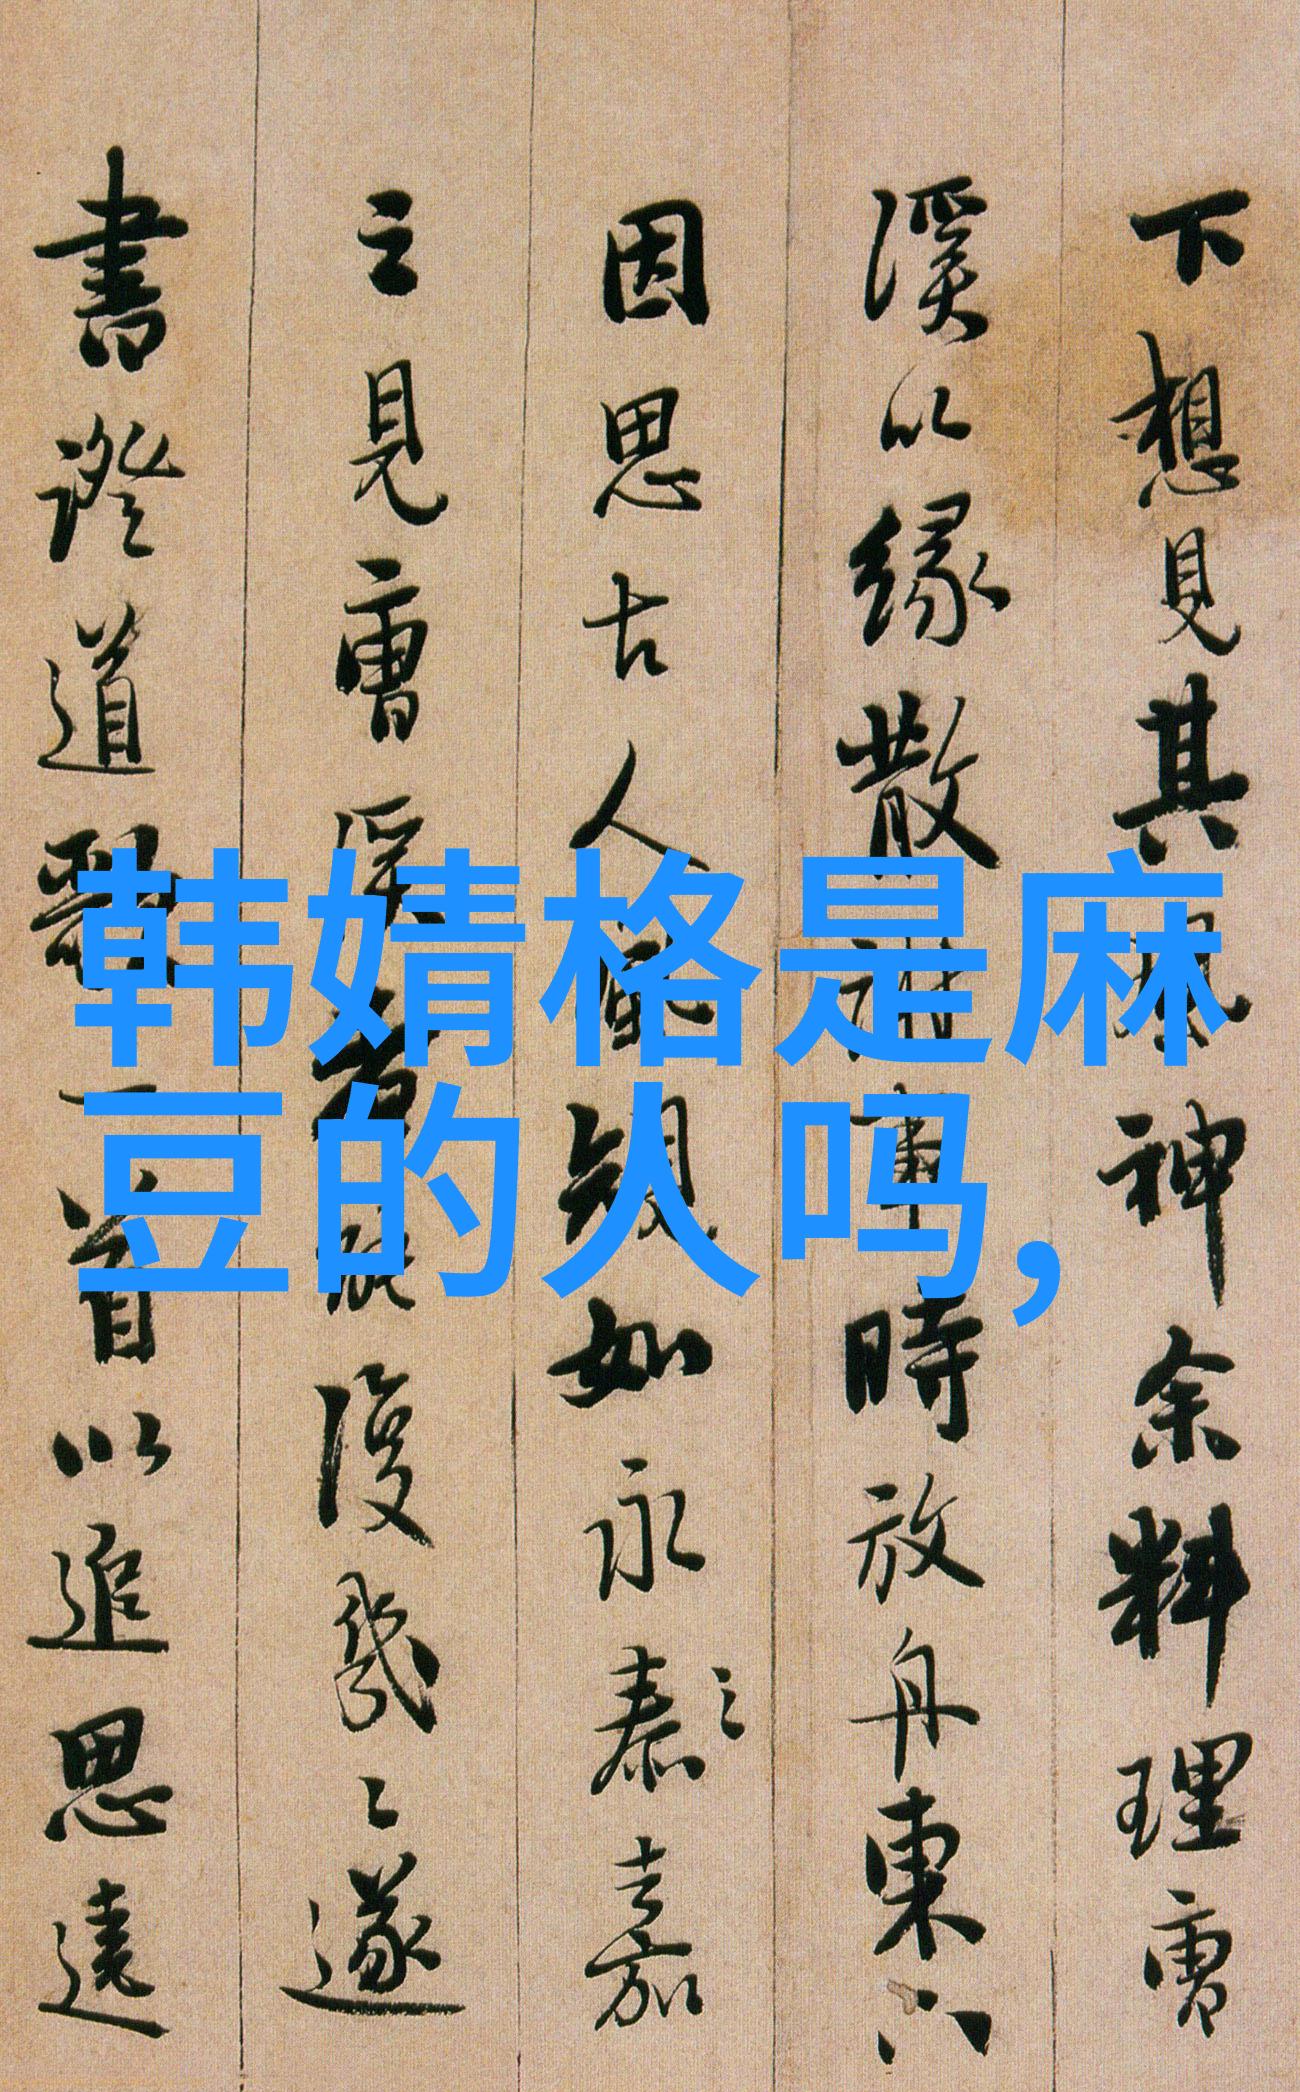 韩婧格是麻
豆的人吗,
下想見其風神余料理曹
溪以緣散 事時放舟東下
因思古人 如永泰之嘉
之見曹溪 復幾之遂
書證道歌一首以追思遠